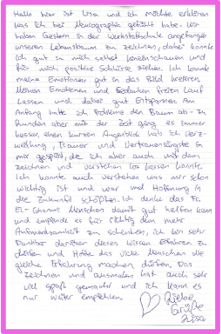 Hallo hier ist Lisa und ich möchte erklären
was ich bei Neurographik gefühlt habe. Wir
haben Gestern in der Werkstattschule angefangen
unseren Lebensbaum zu zeichnen, dabei konnte
ich gut in mich selbst
für mich Schlüsse ziehen. Ich konnte
meine Emotionen gut in das Bild
meinen Emotionen und Gedanken freien Lauf
lassen und dabei gut Entspannen. Am
Anfang hatte ich Probleme den Baum
aber mit der Zeit ging es immer
besser, einen kurzen Augenblick hab ich Verz-
weiflung, Trauer und Vertrauensängste in
mir gespürt, die ich aber auch mit dem
zeichnen und verstehen los lassen konnte.
Ich konnte auch verstehen was mir schon
wichtig ist und war und Hoffnung in
die Zukunft schöpfen. Ich denke das
Menschen damit gut helfen kann
und empfinde es für richtig dem mehr
Aufmerksamkeit zu schenken, ich bin sehr
Dankbar darüber dieses wissen Erfahren zu
dürfen und Hoffe das viele Menschen die
gleiche Erfahrung machen dürfen. Das
Zeichnen und ausmalen hat auch sehr
viel spaß gemacht und ich kann es
nur weiter empfehlen.
Liebe
Grüße
Lisa